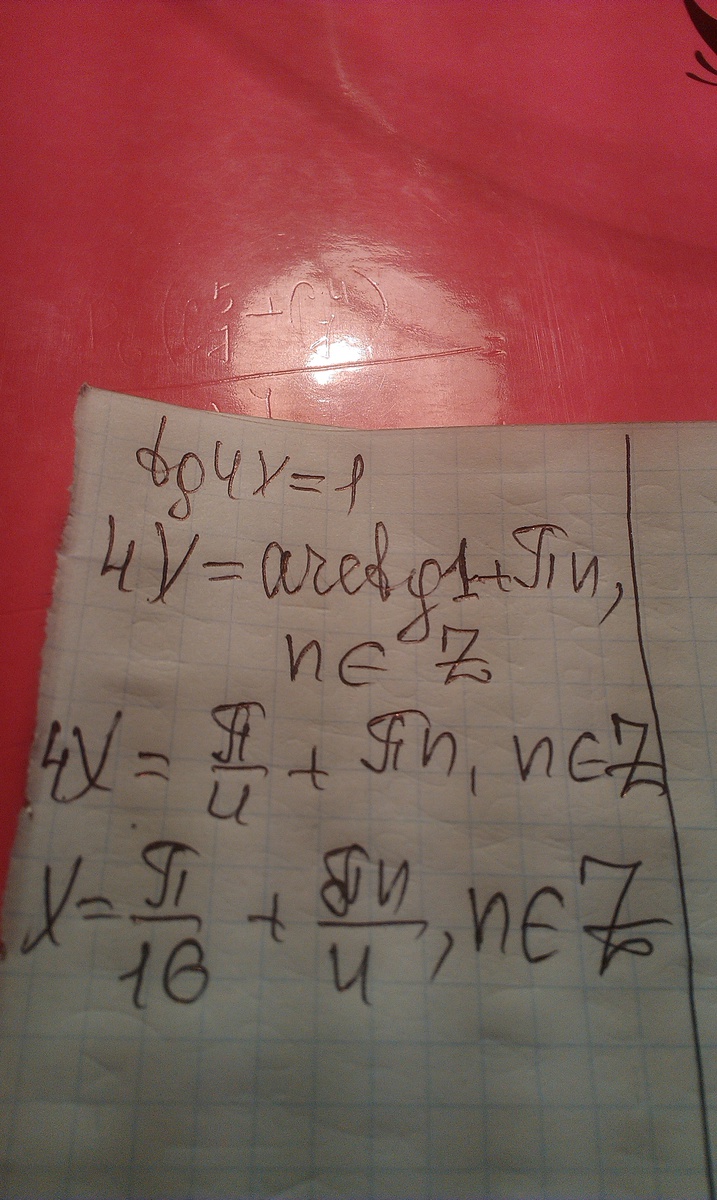 tg4x=1
4x=arctg1+πn,
n∈Z
4x=π/4+πn, n∈Z
x=π/16+πn/4, n∈Z